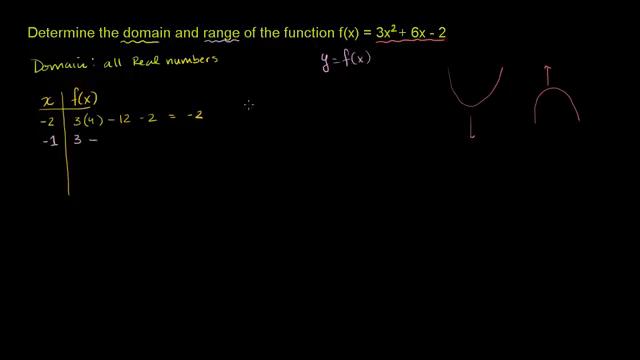 Determine the domain and range of the function f(x) = 3x² + 6x - 2
Domain: all Real numbers
y = f(x)
x f(x)
-2 3(4) - 12 - 2 = -2
-1 3 -